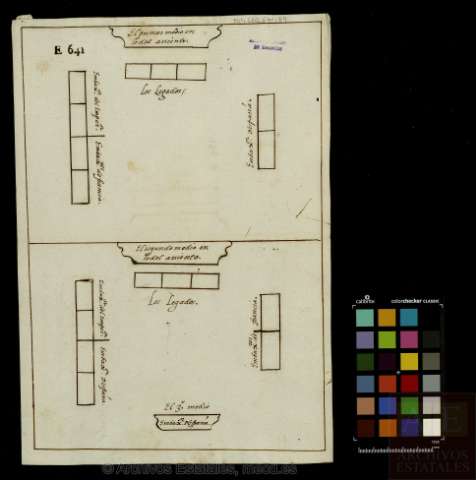 E 641
El primer medio en
los asientos.
Los Legados.
Embax.or del Emp.or
Embax.or de francia.
Embax.or de españa.
El segundo medio en
los asientos.
Los Legados.
Embax.or del Emp.or
Embax.or de españa
Embax.or de francia.
El 3.º medio
Embax.or de españa.
colorchecker classic
© Archivos Estatales, mecd.es
ARCHIVOS
ESTATALES